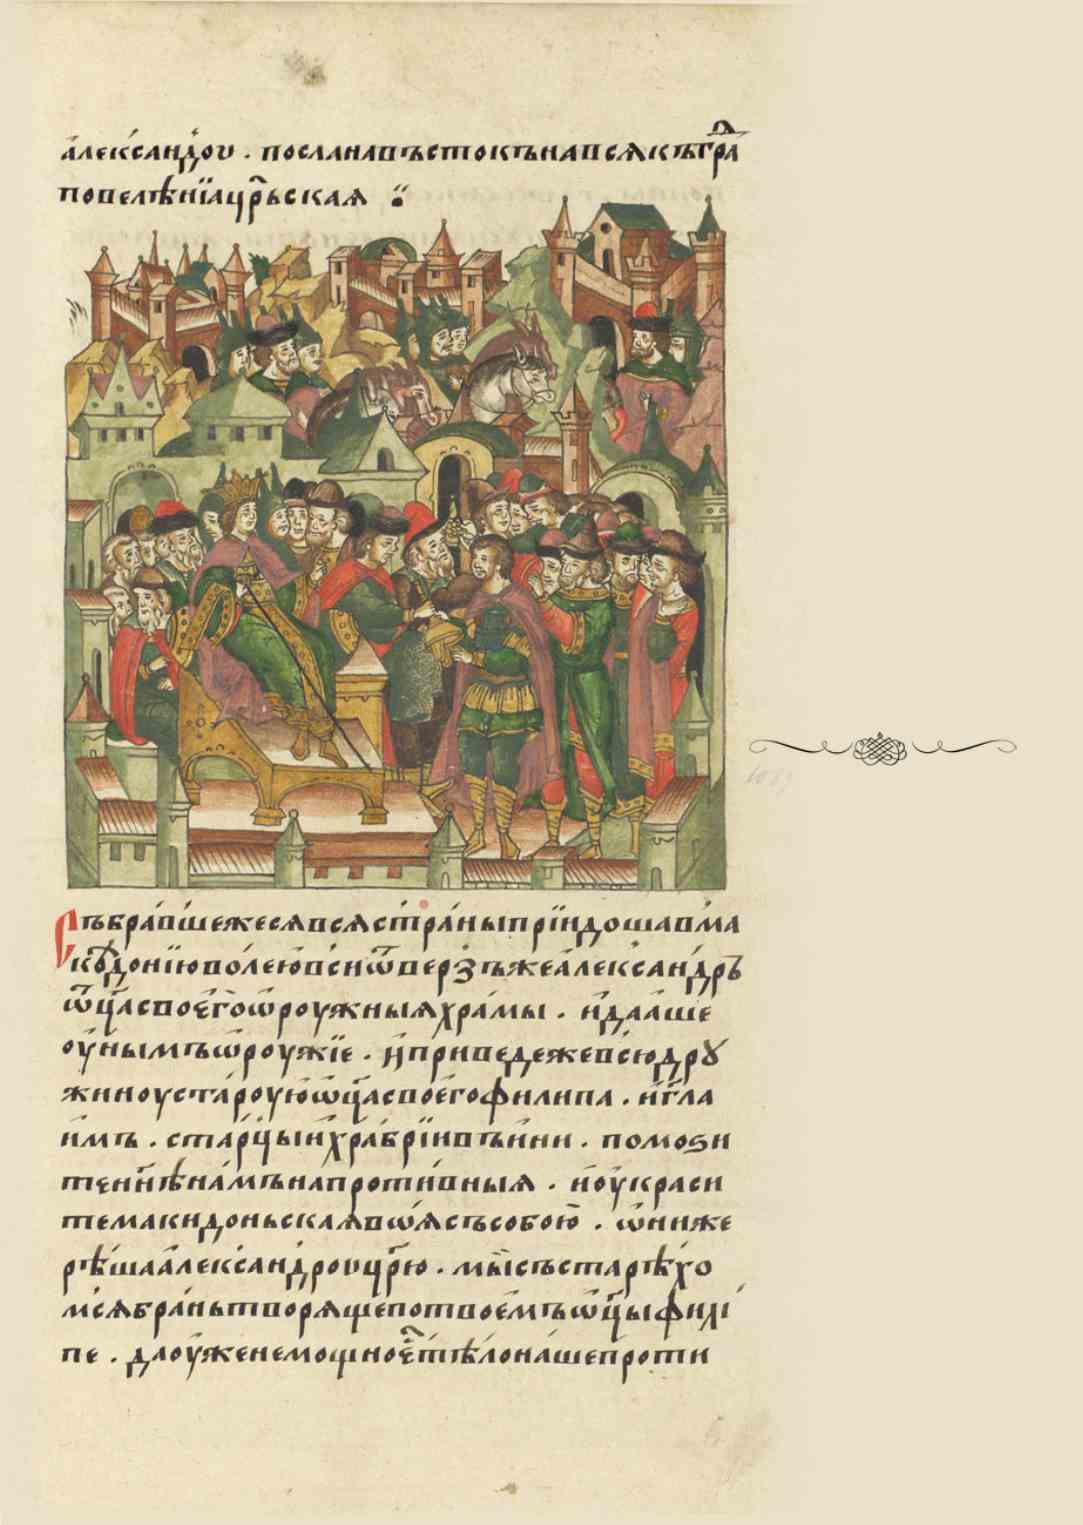 а҆леѯандоу . посла на въстокъ на всѧкъ гра
повелѣнїа црьскаѧ
Събравшежесѧ всѧ страны прїидоша в ма
кⷣонїю волею всн ѿверзъ же а҆леѯандръ
ѿца своего ѻроужныѧ храмы . и даꙗше
оу҆нымъ ѻроужїе . и приведе же всю дрꙋ
жиноу староую ѿца своего филипа . и гл҃а
имъ . старцы и храбрїи въини . помози
те и ннѣ намъ на противныѧ . и оу҆краси
те макидоньскаѧ воѧ съ собою . ѻни же
рѣша алеѯандроу црю . мы състарѣхо
мсѧ брань творѧще по твоемъ ѿцы филї
пе . да оуже не мощно є҆ тѣло наше проти